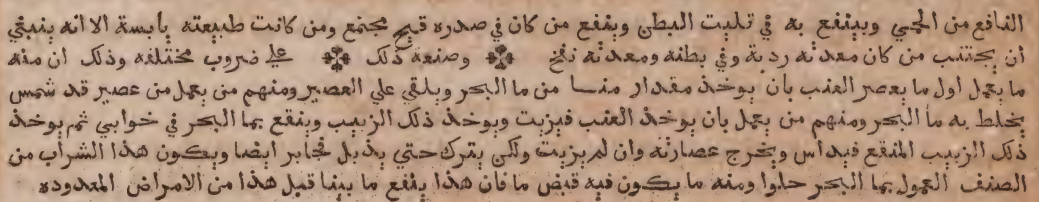 النافع من الحمي وينتفع به في تليت البطن وينفع من كان في صدره قيح مجتمع ومن كانت طبيعته يابسة الا انه ينبغي
ان يجتنب من كان معدته ردية وفي بطنه ومعدته نفخ وصنعة ذلك علي ضروب مختلفه وذلك ان منه
ما يعمل اول ما يعصر العنب بان يوخذ مقدار منسا من ما البحر ويلقي علي العصير ومنهم من يعمل من عصير قد شمس
يخلط به ما البحر ومنهم من يعمل بان يوخذ العنب فيزبت ويوخذ ذلك الزبيب وينقع بما البحر في خوابي ثم يوخذ
ذلك الزبيب المنقع فيداس ويخرج عصارته وان لم يزبت ولكن يترك حتي يذبل فجاير ايضا ويكون هذا الشراب من
الصنف المعمول بما البحر حلوا ومنه ما يكون فيه قبض ما فان هذا ينفع ما بينا قبل هذا من الامراض المعدوده